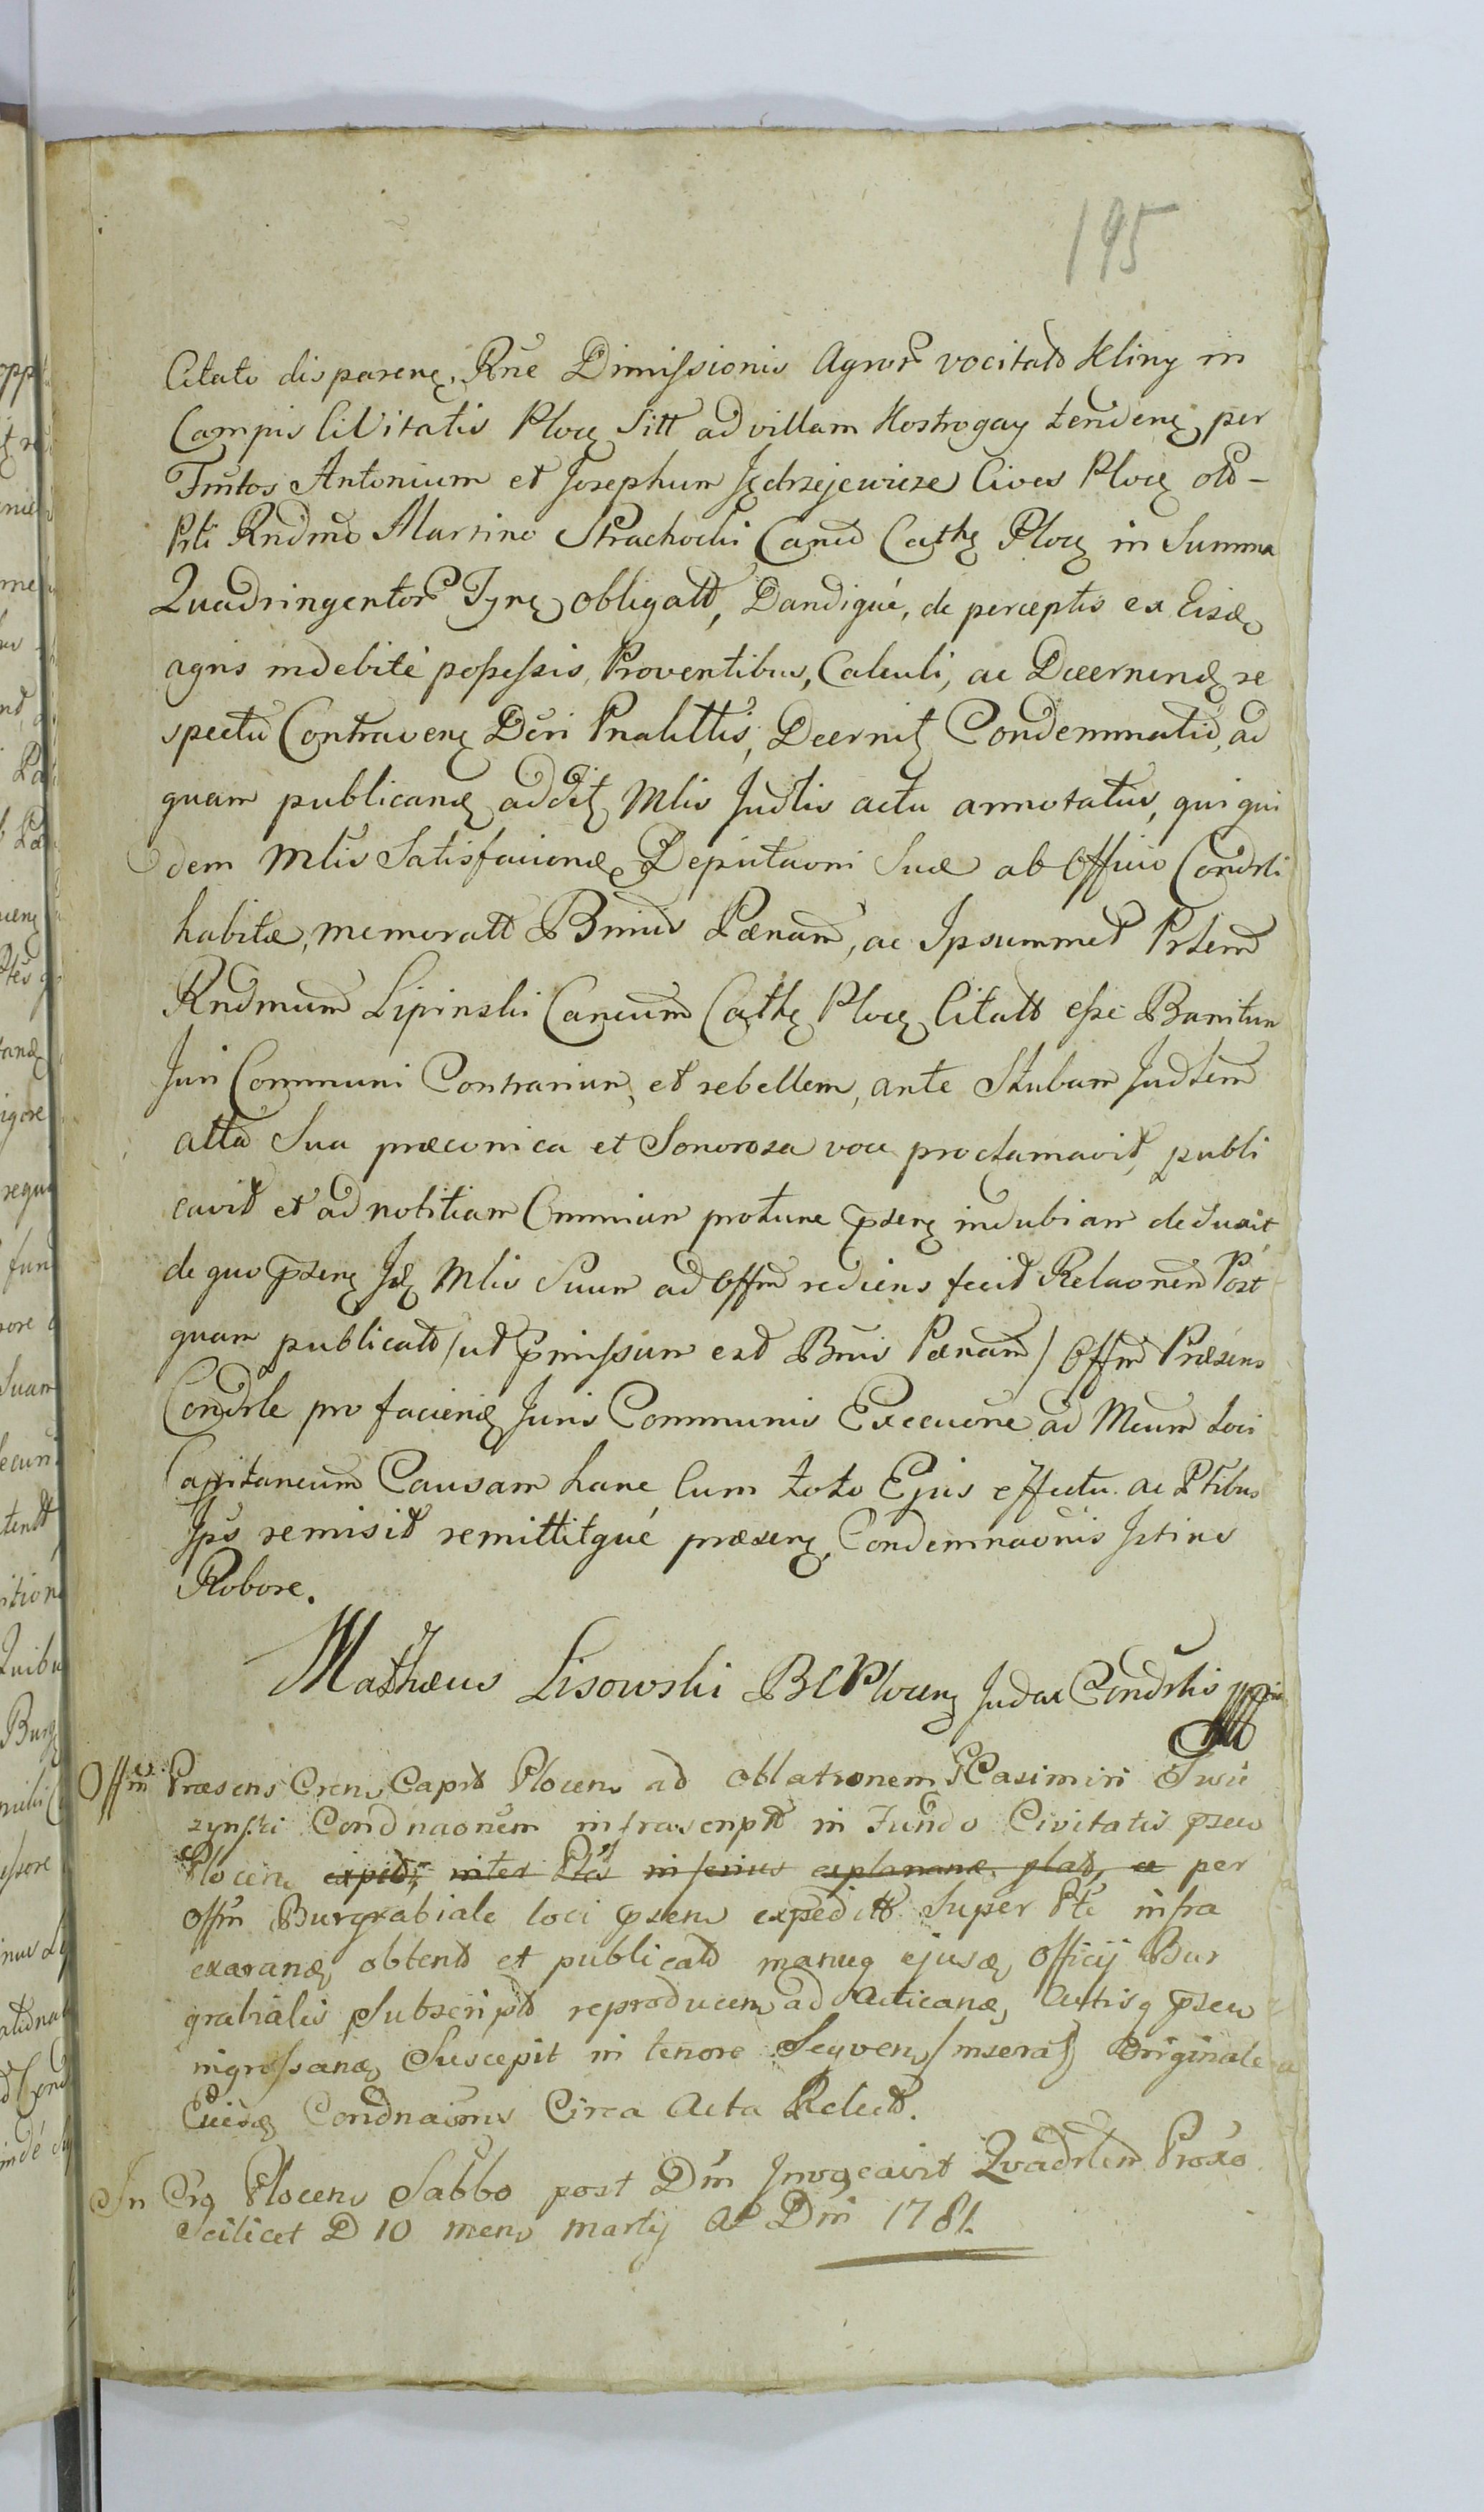 195
Citato disparenę. Rñe Dimissionis Agror̃ vocitato Kliny in
Campis CiVitatis Plocę Sitt ad villam Kostrogay tendenę, per
Fmtos Antonium et Josephum Jędrzejewicze Cives Plocę olđ-
Prłi Rndmo Martino Strachocki Canco Cathę Plocę in Summa
Quadringentor̃ Tynę obligatđ, Dandiqué, de perceptis ex Eisđ
agris indebité possessis, Proventibus, Calculi, ac Decernendę re
spectu Contravenę Dcri Pnalittis, Decernitę Condemnatiõ, ad
quam publicanđ addit Mlis Judlis actu annotatus, qui qui
dem Mlis Satisfacienđ Deputaoni Suæ ab Officio Condrli
habitæ, memoratt Bnnis Pœnam, ac Ipsummet Prlem
Rndmum Lipinski Cancum Cathę Plocę Citatt esse Banitum
Juri Communi Contrarium, et rebellem, ante Stubam Judlem
alta Sua præconica et Sonorosa voce proclamavit, publi
cavit et ad notitiam Omnium protunc psenę indubiam deduxit
de quo psenę Jđ Mlis Suam ad Offm rediens fecit Relaonem Post
quam publicatđ /ut pmissum est Bnis Pœnam/ Offm Præsens
Condrle pro faciendę Juris Communis Execuone ad Meum Loci
Capitaneum Causam hanc, Cum toto Ejus effectu ac Ptibus
Jps remisit remittitqué præsenę, Condemnaõnis Jstius
Robore.
Mathæus Lisowski BCPlocenę Judex Condrlis mppria
Offm Præsens Cren Capit Plocen ad oblationem GCasimiri Swie
zynski Condnaonem infrascriptt in Fundo Civitatis psen
Plocen expedt, inter Ptes inferius explanand, glat, ex per
Offm Burgrabiale loci psen expeditt Super Pte infra
exaranđ obtentđ et publicatđ manuq ejusđ, Officij Bur
grabialis Subscriptđ reproducen ad Acticanđ, Actisq psen
ingrossanđ Suscepit in tenore Sequen /inserat/ Originale a
Eiesđ Condnaonis Circa Acta Relict.
In Crę Plocen Sabbo post Dm Invocavit Quadrlem Proxo
Scilicet D 10 mens Martij Ao Dni 1781.